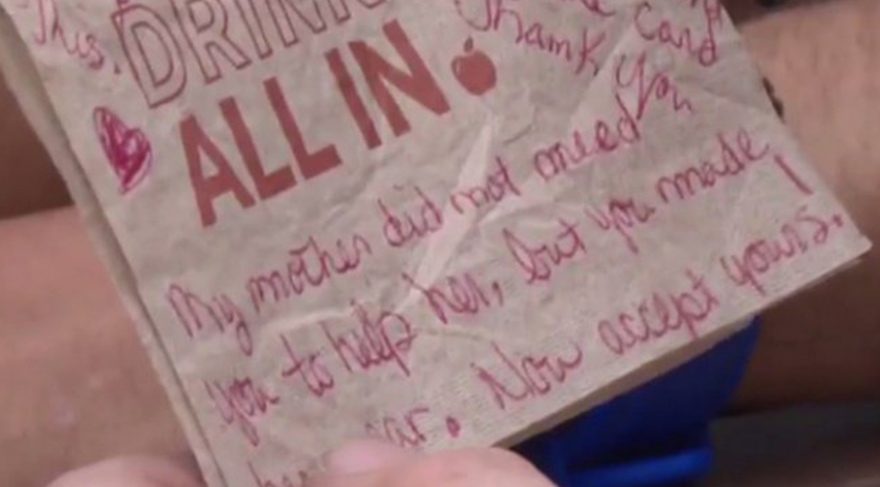 This
DRINK
Card
Thank
You
ALL IN
My mother did not need
you to help her, but you made
her Now accept yours.